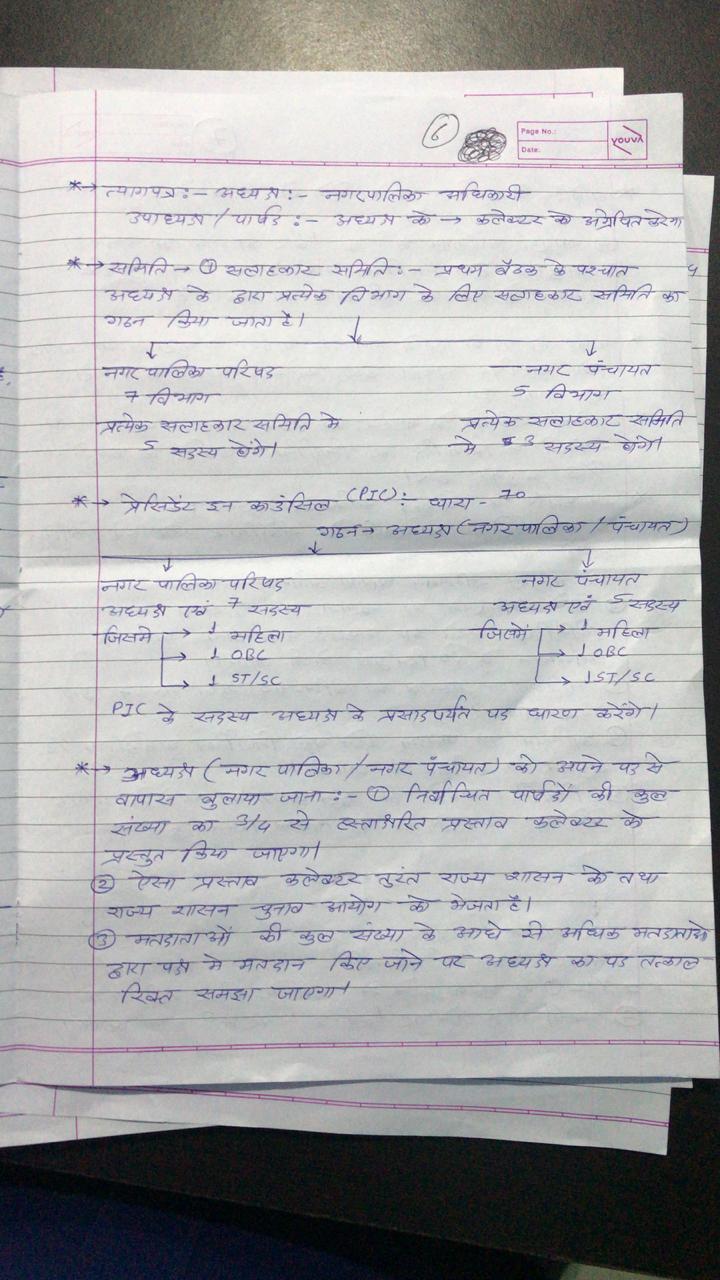 6
Page No.:
Date:
YOUVA
*→ त्यागपत्र:- अध्यक्ष:- नगरपालिका अधिकारी
उपाध्यक्ष / पार्षद :- अध्यक्ष को → कलेक्टर को अग्रेषित करेगा
*→ समिति → ① सलाहकार समिति:- प्रथम बैठक के पश्चात
अध्यक्ष के द्वारा प्रत्येक विभाग के लिए सलाहकार समिति का
गठन किया जाता है।
नगरपालिका परिषद नगर पंचायत
7 विभाग 5 विभाग
प्रत्येक सलाहकार समिति मे प्रत्येक सलाहकार समिति
5 सदस्य होंगे। मे 3 सदस्य होंगे।
*→ प्रेसिडेंट इन काउंसिल (PIC):- धारा- 70
गठन→ अध्यक्ष (नगरपालिका / पंचायत)
नगर पालिका परिषद नगर पंचायत
अध्यक्ष एवं 7 सदस्य अध्यक्ष एवं 5 सदस्य
जिसमे → 1 महिला जिसमें → 1 महिला
→ 1 OBC → 1 OBC
→ 1 ST/SC → 1 ST/SC
PIC के सदस्य अध्यक्ष के प्रसादपर्यंत पद धारण करेंगे।
*→ अध्यक्ष (नगर पालिका / नगर पंचायत) को अपने पद से
वापास बुलाया जाना:- ① निर्वाचित पार्षदों की कुल
संख्या का 3/4 से हस्ताक्षरित प्रस्ताव कलेक्टर को
प्रस्तुत किया जाएगा।
② ऐसा प्रस्ताव कलेक्टर तुरंत राज्य शासन को तथा
राज्य शासन चुनाव आयोग को भेजता है।
③ मतदाताओं की कुल संख्या के आधे से अधिक मतदाताओ
द्वारा पक्ष मे मतदान किए जाने पर अध्यक्ष का पद तत्काल
रिक्त समझा जाएगा।